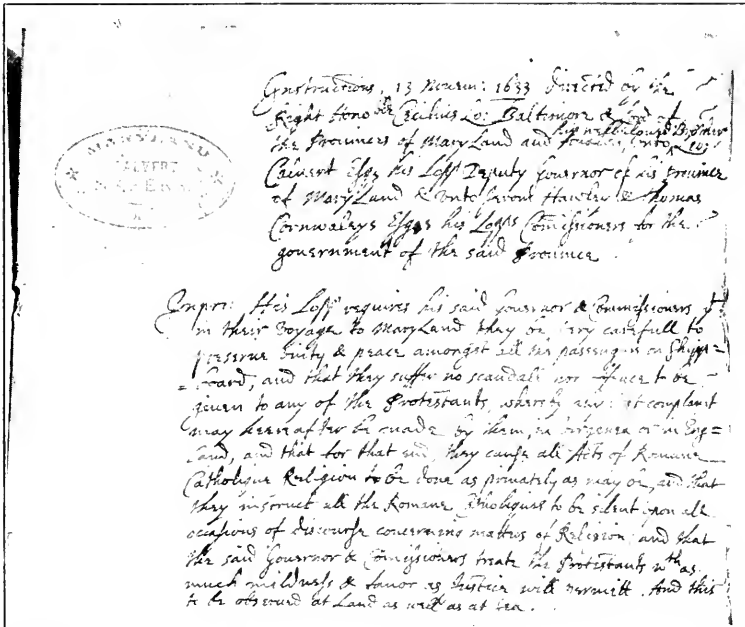 Instructions, 13 Novem: 1633 directed by the
Right Hono ble Cecilius Lo: Baltimore & Lord of
the Provinces of Mary Land and Avalon, unto
his well beloved Brother Leo:
Calvert Esqr his Lopps Deputy Governor of his province
of Mary Land & unto Jerom Hawley & Thomas
Cornwaleys Esqrs his Lopps Comissioners for the
government of the said Province.
MARYLAND
CALVERT
Inpri: His Lopp requires his said Governor & Commissioners yt
in their voyage to Mary Land they be very carefull to
preserve unity & peace amongst all the passengers on Shipp=
=board, and that they suffer no scandall nor offence to be
given to any of the Protestants, whereby any just complaint
may heereafter be made by them, in Virginea or in Eng=
land, and that for that end, they cause all Acts of Romane
Catholique Religion to be done as privately as may be, and that
they instruct all the Romane Catholiques to be silent upon all
occasions of discourse concerning matters of Religion; and that
the said Governor & Comissioners treate the Protestants wth as
much mildness & favor as Justice will permitt. And this
to be observed at Land as well as at Sea.